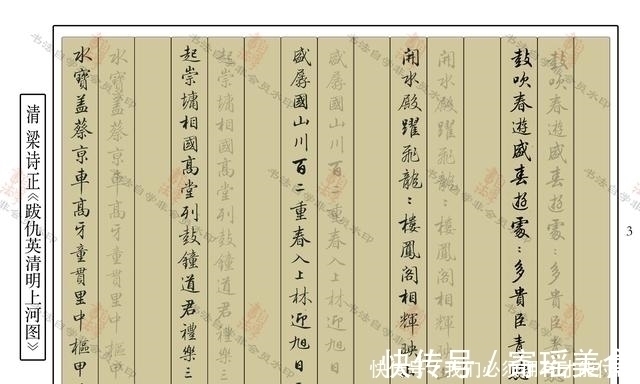 3
鼓吹春遊盛春遊處：多貴臣青
鼓吹春遊盛春遊處：多貴臣青
開水殿躍飛龍：樓鳳閣相輝映
開水殿躍飛龍：樓鳳閣相輝映
盛孱國山川百二重春入上林迎旭日
盛孱國山川百二重春入上林迎旭日
起崇墉相國高堂列鼓鐘道君禮樂三
起崇墉相國高堂列鼓鐘道君禮樂三
水寶蓋蔡京車高牙童貫里中樞甲
水寶蓋蔡京車高牙童貫里中樞甲
清 梁诗正《跋仇英清明上河图》
书法自学非会员水印
快传号 /